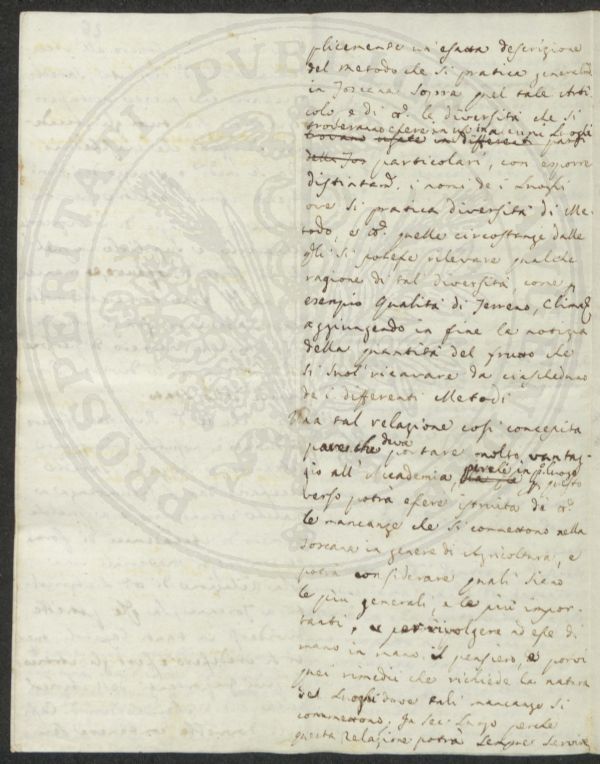 plicemente un'esatta descrizione
del metodo che si pratica general.te
in Toscana sopra quel tale Arti
colo, e di le diversità che si
troveranno essere in uso in alcuni Luoghi
trovano usate in differenti parti
della Tos particolari, con esporre
distintam. i nomi de i Luoghi
ove si pratica diversità di Me-
todo, e quelle circostanze dalle
qli si potesse rilevare qualche
ragione di tal diversità, come p
esempio Qualità di Terreno, Clima &
aggiungendo in fine la notizia
della quantità del frutto che
si suol ricavare da ciascheduno
de i differenti Metodi
Una tal relazione così concepita
pare che deva portare molto vantag-
gio all'Accademia, perché in p.o luogo p questo
verso potrà essere istruita di
le mancanze che si commettono nella
Toscana in genere di Agricoltura, e
potrà considerare quali sieno
le più generali, e le più impor-
tanti, e per rivolgere ad esse di
mano in mano il pensiero, e porvi
quei rimedii che richiede la natura
dei Luoghi dove tali mancanze si
commettono. In Luogo perche
questa relazione potrà sempre servire